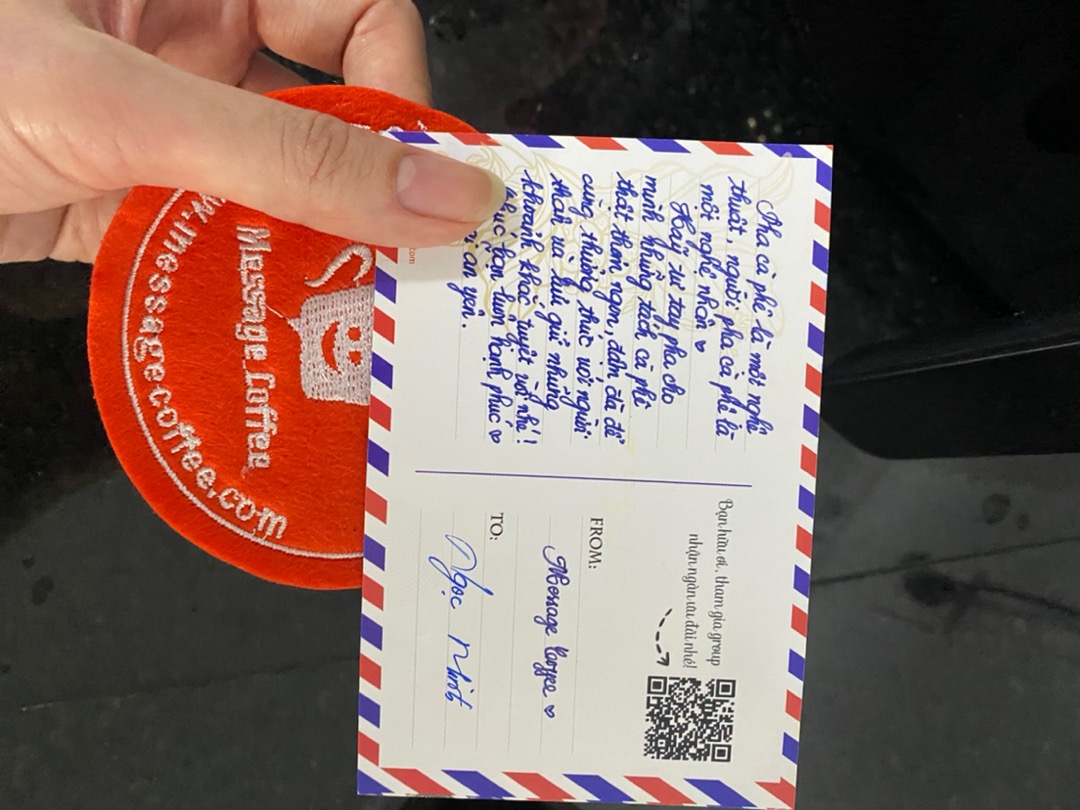 Pha cà phê là một nghệ
thuật, người pha cà phê là
một nghệ nhân
Hãy tự tay pha cho
mình những tách cà phê
thật thơm ngon, đậm đà để
cùng thưởng thức với người
thân và lưu giữ những
khoảnh khắc tuyệt vời nhé!
Chúc bạn luôn hạnh phúc
an yên.
Bạn hữu ơi, tham gia group
nhận ngàn ưu đãi nhé!
FROM:
Message Coffee
TO:
Ngọc Nhót
.com
Message Coffee
w.messagecoffee.com